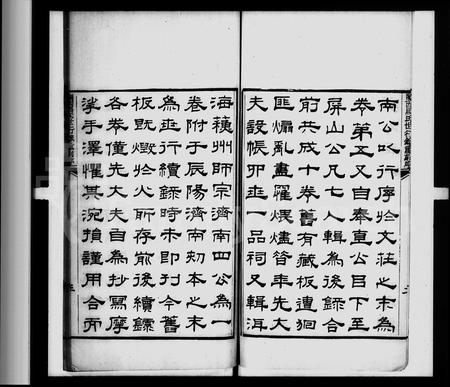 南公以行序於文莊之末為
卷第五又自奉直公目下至
屏山公凡七人輯為後錄合
前共成十卷舊有藏板遭
匪煽亂盡罹煨燼昔年先大
夫設帳卯世一品祠又輯洱
海穎州師宗濟南四公為一
卷附于辰陽濟南初本之末
為世行續錄時未即刊今舊
板既燬於火所存前後續錄
各卷僅先大夫自為抄寫摩
挲手澤懼其浣損謹用合而